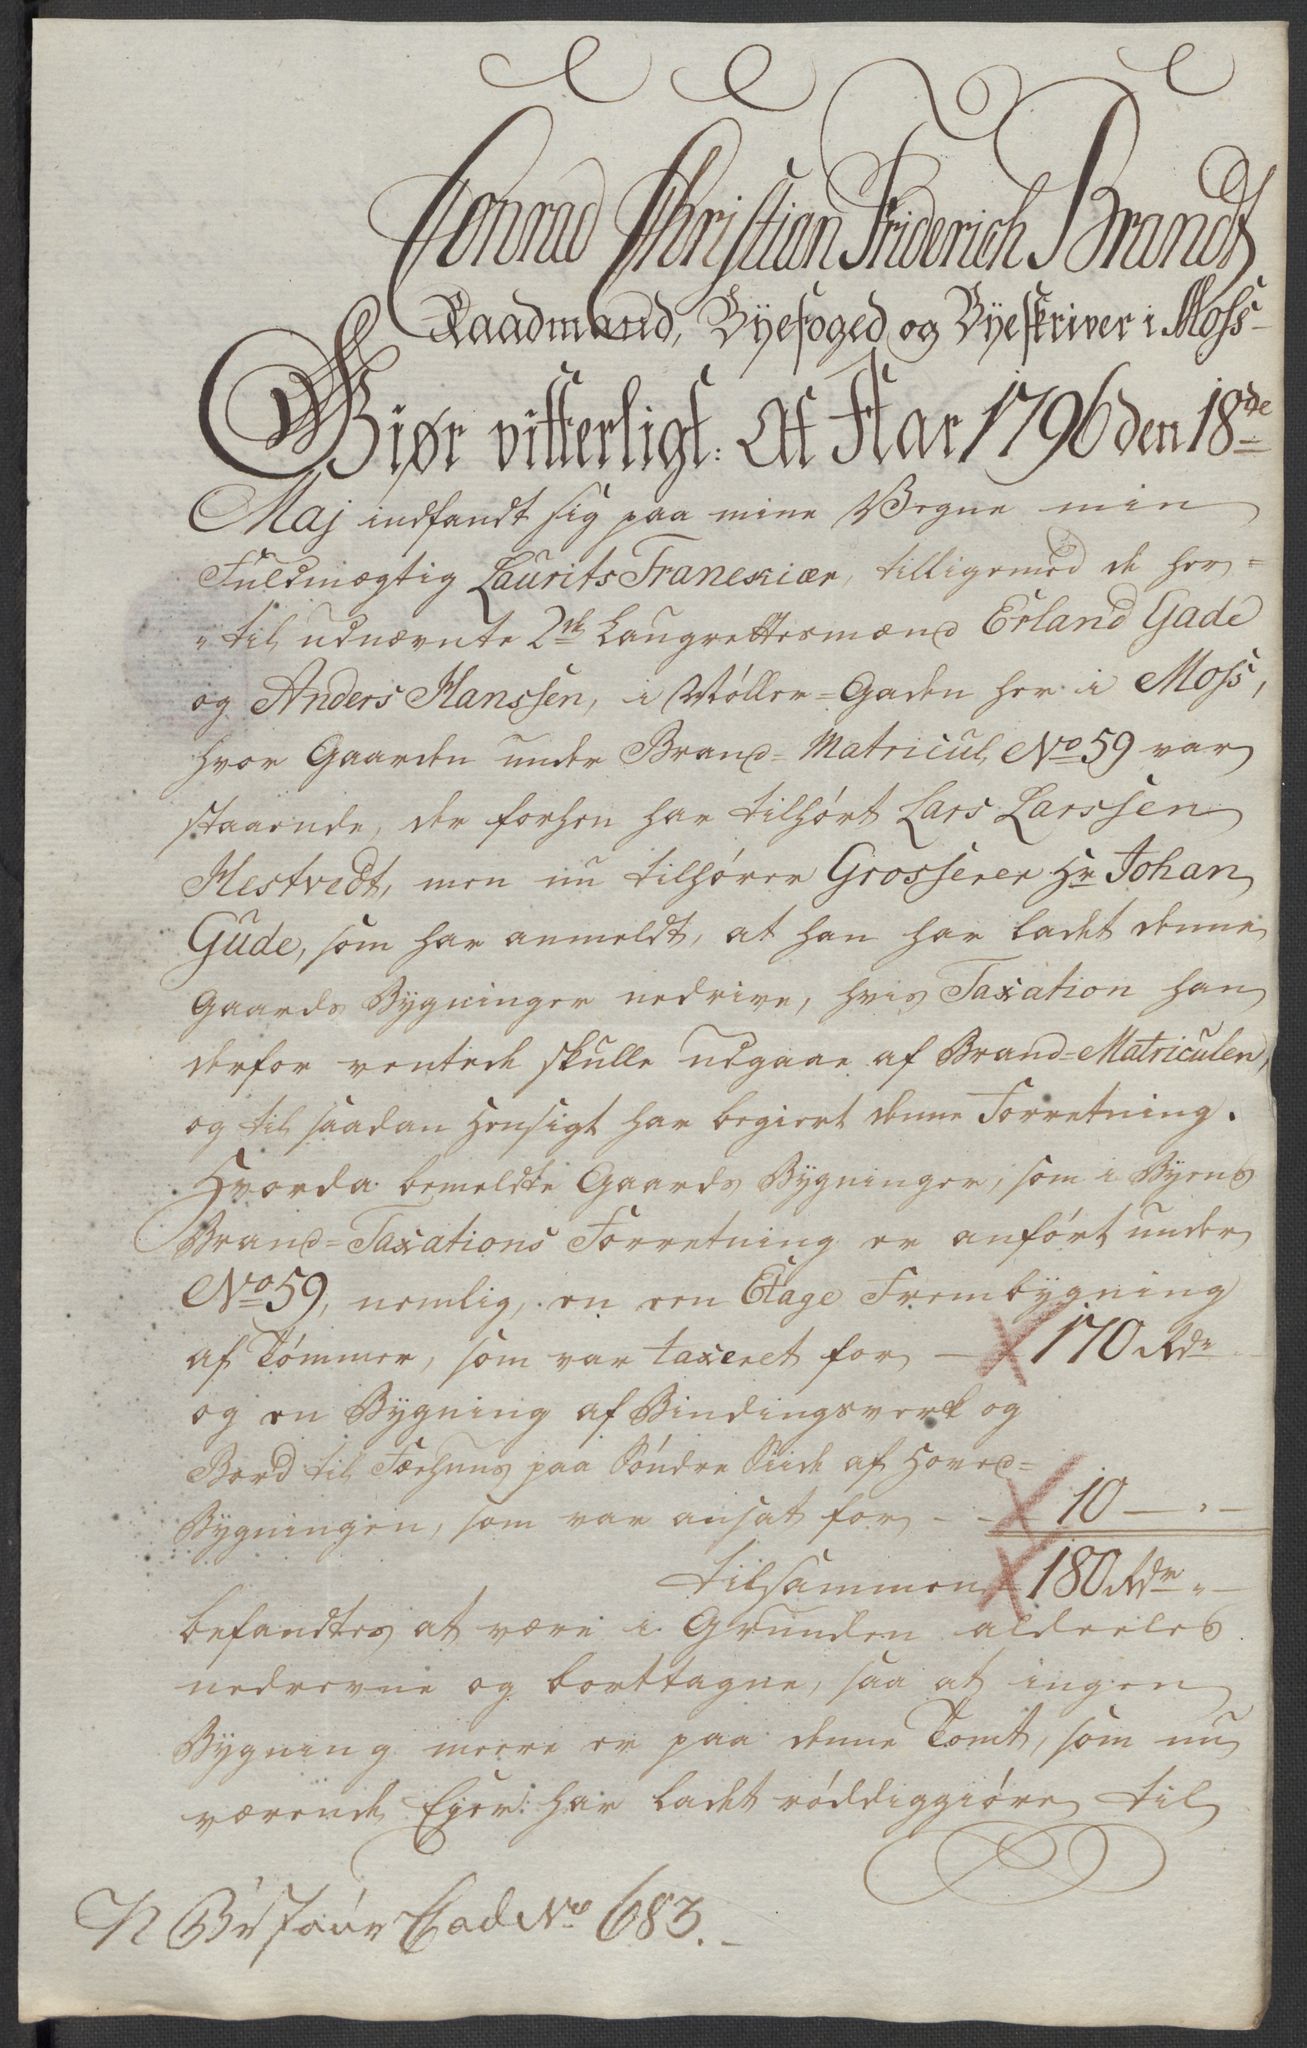 Conrad Christian Friderich Brandt
Raadmand, Byefoged og Byeskriver i Moss
Giør vitterligt: At Aar 1796 den 18de
Maj indfandt sig paa mine Vegne min
Fuldmægtig Laurits Tranekiær, tilligemed de her=
"til udnævnte 2de Laugrettesmænd Erland Gade
og Anders Hanssen, i Møller=Gaden her i Moss,
hvor Gaarden under Brand=Matricul No 59 var
staaende, der forhen har tilhørt Lars Larssen
Hestvedt, men nu tilhører Grosserer Hr Johan
Gude, som har anmeldt, at han har ladet denne
Gaards Bygninger nedrive, hvis Taxation han
derfor ventede skulle udgaae af Brand=Matriculen,
og til saadan Hensigt har begiert denne Forretning.
Hvorda bemeldte Gaards Bygninger, som i Byens
Brand=Taxations Forretning er anført under
No 59, nemlig, en een Etage Frembygning
af Tømmer, som var taxeret for — 170 Rdr
og en Bygning af Bindingsverk og
Bord til Fæehuus paa Søndre Siide af Hoved=
Bygningen, som var ansat for - - 10 — " —
tilsammen 180 Rdr " —
befandtes at være i Grunden aldeeles
nedrevne og borttagne, saa at ingen
Bygning meere er paa denne Tomt, som nu
værende Ejer har ladet røddiggiøre til
Cad No 683.